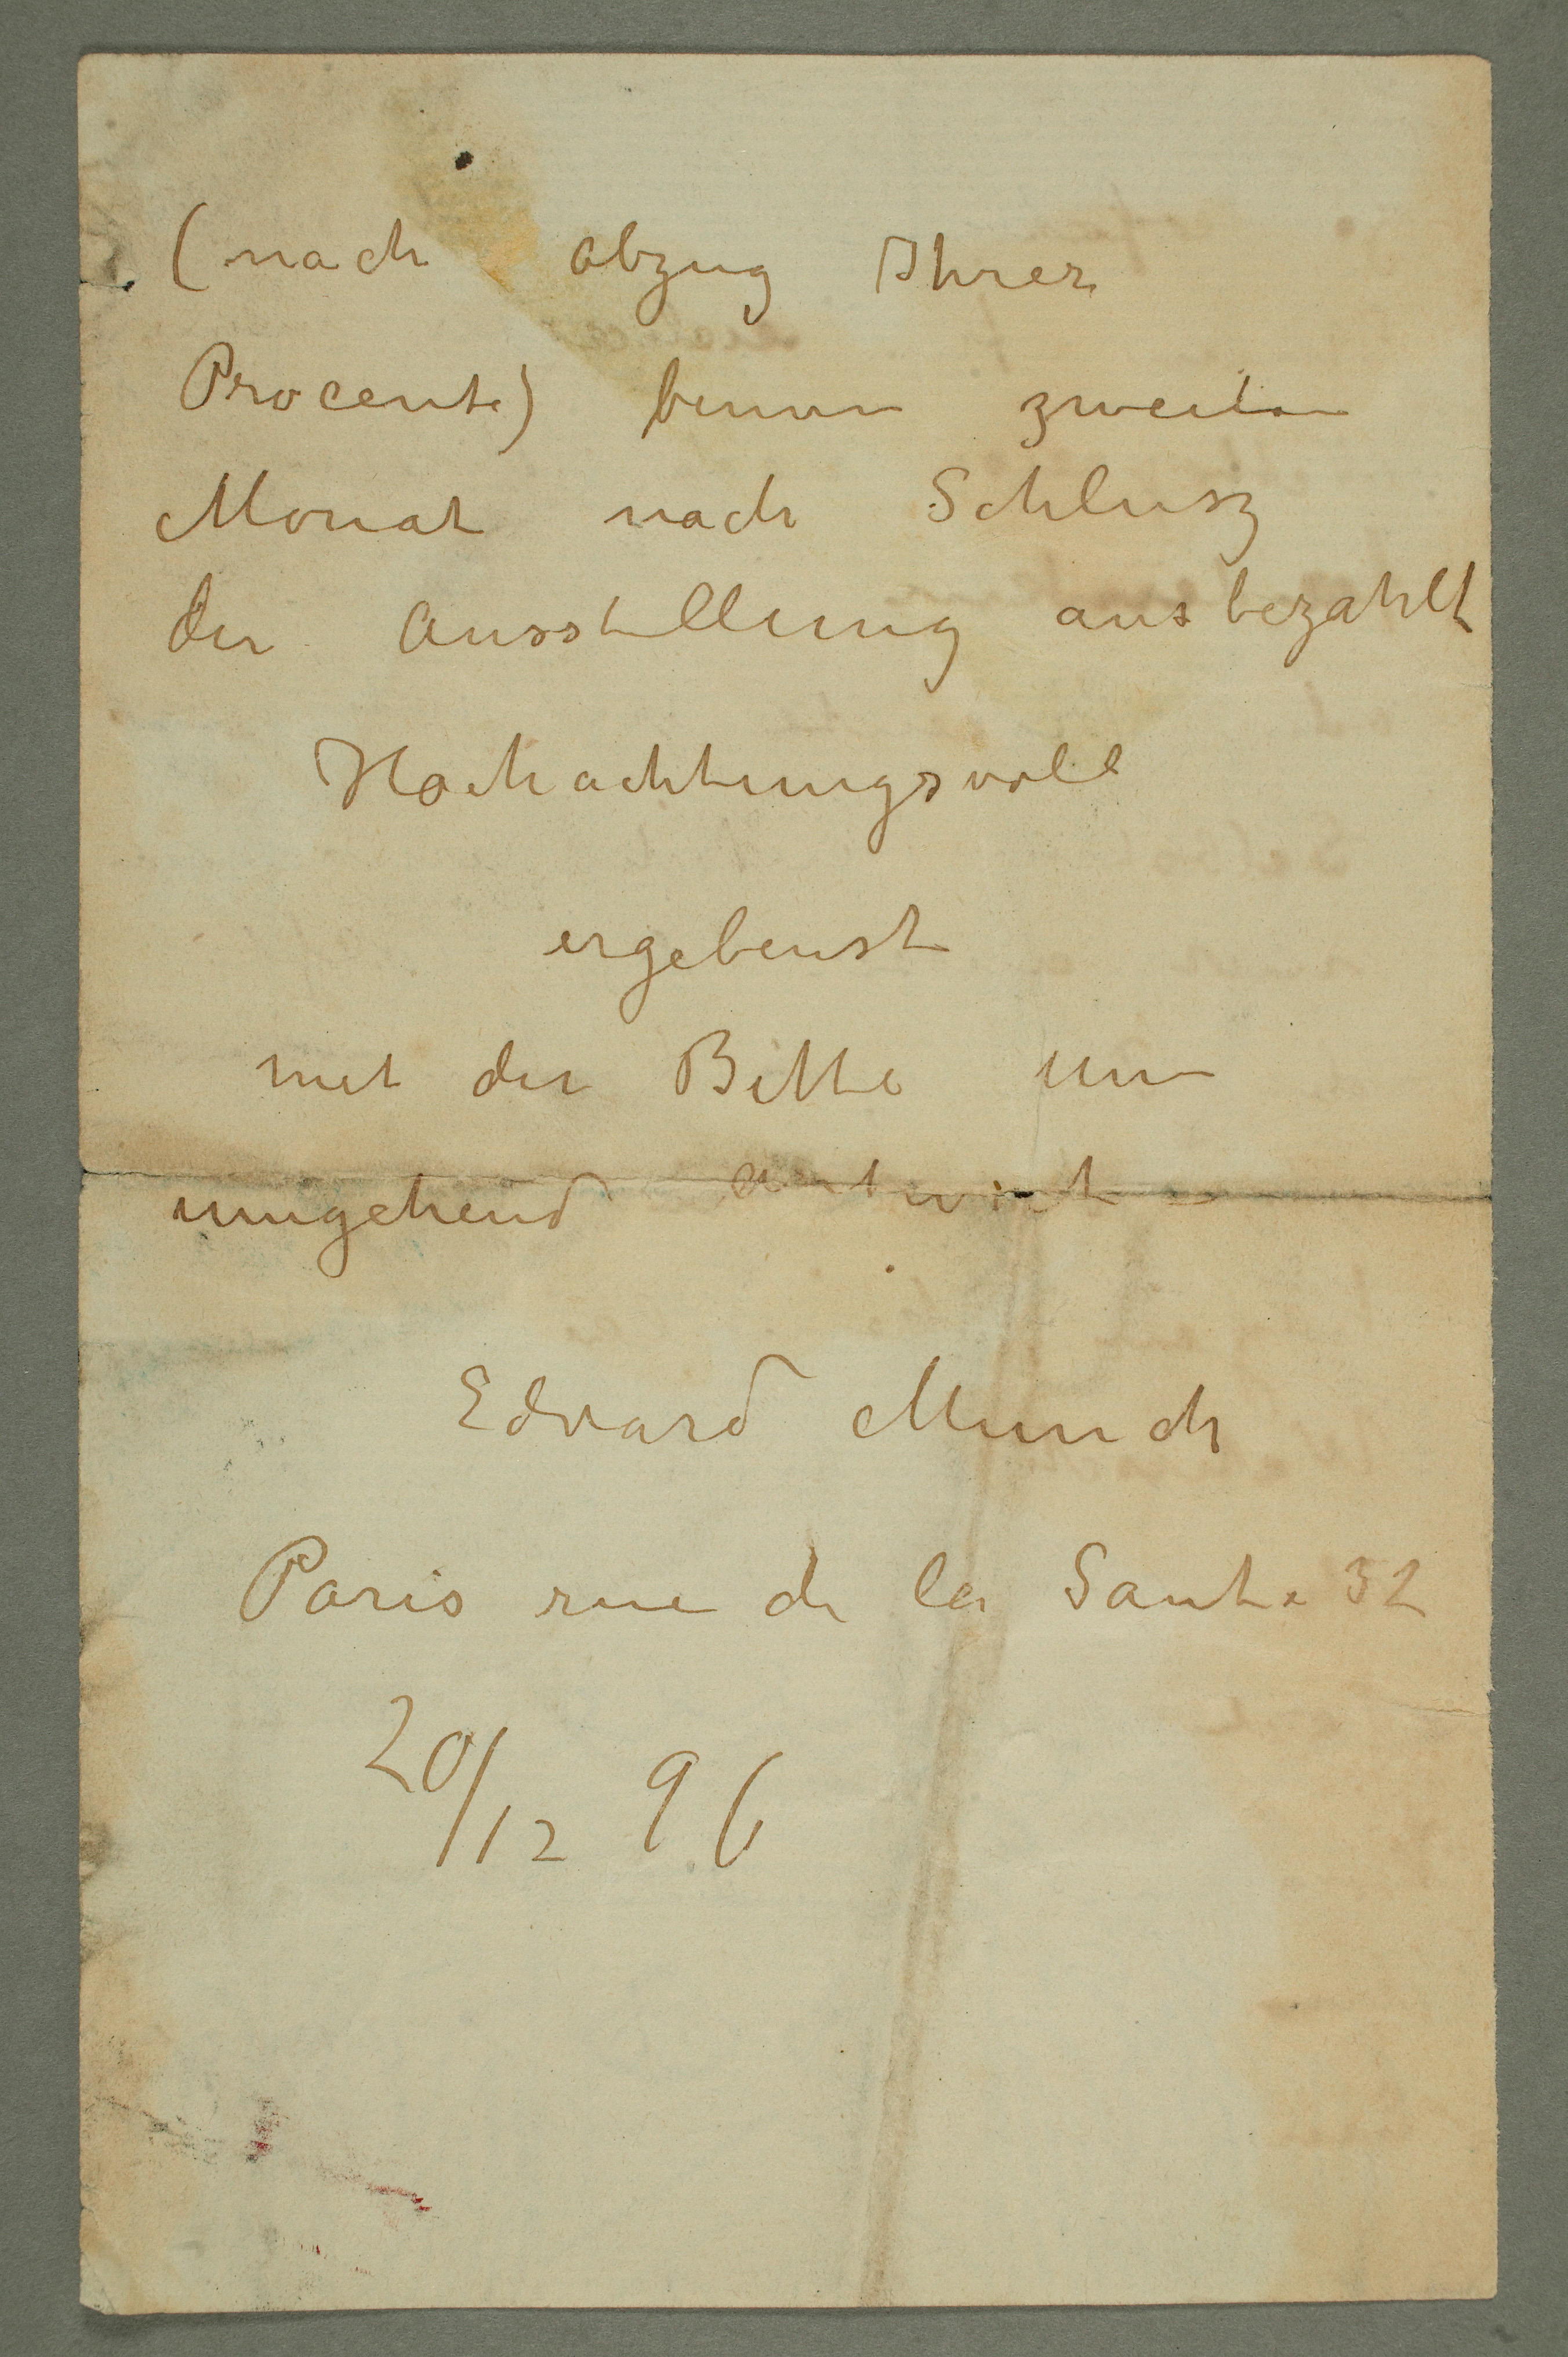 (nach abzug Ihrer
Procente) binnen zweiten
Monat nach Schlusz
der Ausstellung ausbezahlt
Hochachtungsvoll
ergebenst
mit der Bitte um
umgehend antwort
Edvard Munch
Paris rue de la Sante 32
20/12 96